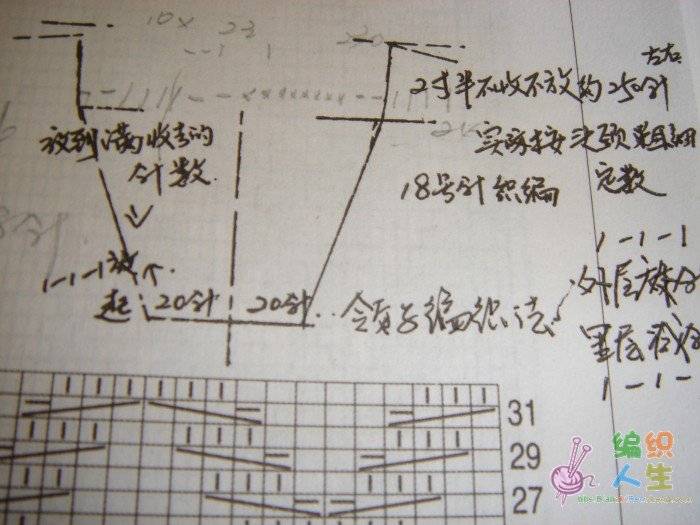 10× 23
左右
2寸半不收不放约250针
放到满收去的
针数
实际按头颈粗细
定数
18号针织编
1-1-1放
起 20针 20针
领子编织法
1-1-1
外层放针
里层
1-1-1-
31
29
27
编织
人生